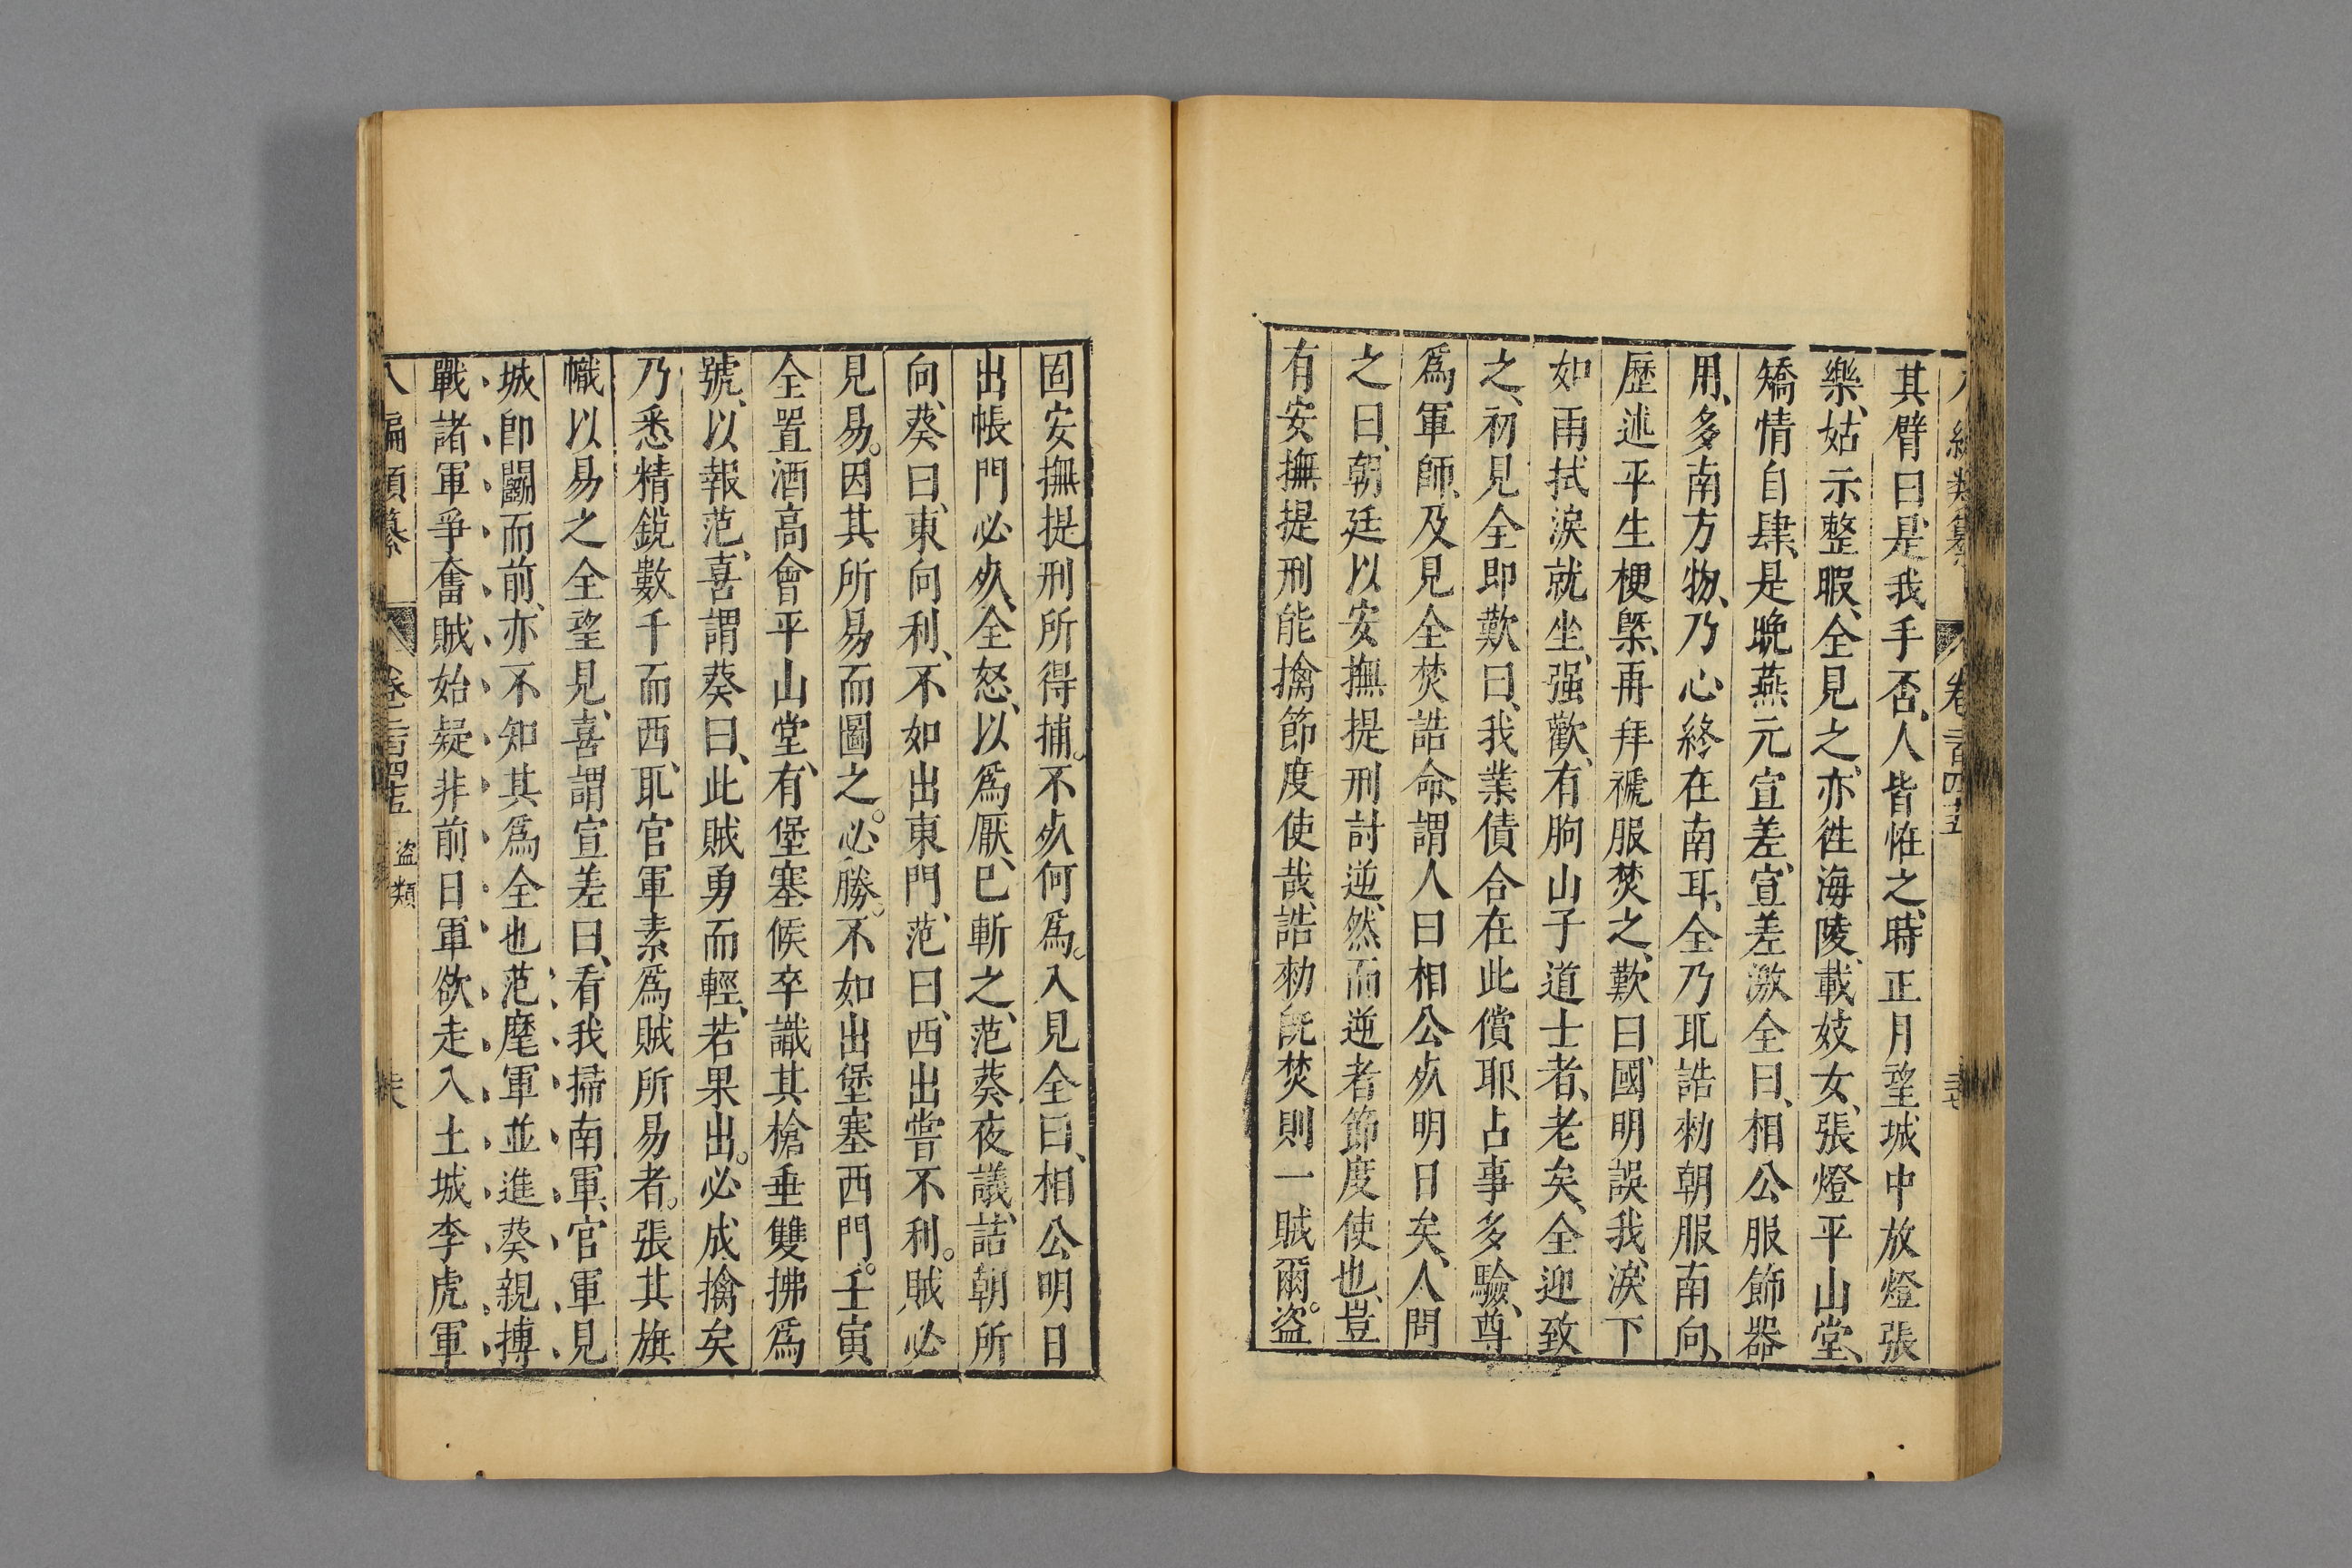 八編類纂 卷二百四十五
其臂曰是我手否人皆恠之時正月望城中放燈張
樂姑示整暇全見之亦徃海陵載妓女張燈平山堂
矯情自肆是晩燕元宣差宣差激全曰相公服飾器
用多南方物乃心終在南耳全乃耴誥勑朝服南向
歷述平生梗槩再拜褫服焚之歎曰國明誤我淚下
如雨拭淚就坐强歡有朐山子道士者老矣全迎致
之初見全即歎曰我業債合在此償耶占事多驗尊
爲軍師及見全焚誥命謂人曰相公𣦸明日矣人問
之曰朝廷以安撫提刑討逆然而逆者節度使也豈
有安撫提刑能擒節度使哉誥勑旣焚則一賊爾盜
固安撫提刑所得捕不𣦸何爲入見全曰相公明日
出帳門必𣦸全怒以爲厭已斬之范葵夜議詰朝所
向葵曰東向利不如出東門范曰西出嘗不利賊必
見易因其所易而圖之必勝不如出堡塞西門壬寅
全置酒高會平山堂有堡塞候卒識其槍垂雙拂爲
號以報范喜謂葵曰此賊勇而輕若果出必成擒矣
乃悉精銳數千而西耴官軍素爲賊所易者張其旗
幟以易之全望見喜謂宣差曰看我掃南軍官軍見
城卽鬬而前亦不知其爲全也范麾軍並進葵親搏
戰諸軍爭奮賊始疑非前日軍欲走入土城李虎軍
八編類纂 卷二百四十五 盜類